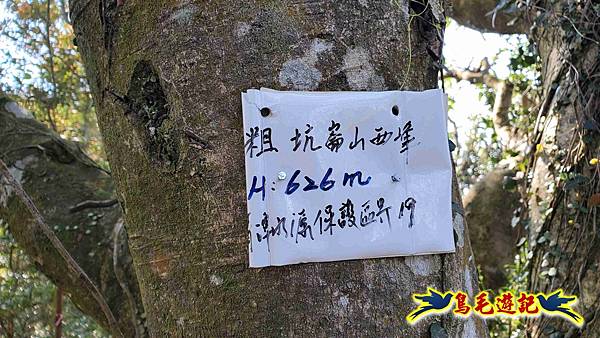 粗坑崙山西峰
H:626m
水源保護區界19
鳥毛遊記